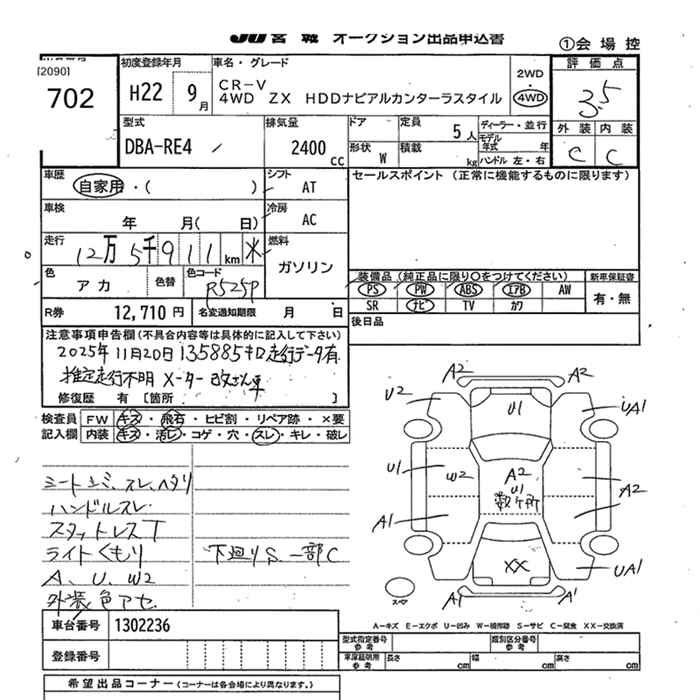 JU宮城 オークション出品申込書
①会場控
[2090]
702
初度登録年月
H22年 9月
車名・グレード
CR-V
4WD ZX HDDナビアルカンターラスタイル
2WD
4WD
評価点
3.5
外装 内装
C C
型式
DBA-RE4
排気量
2400cc
ドア
形状 W
定員 5人
積載 kg
ディーラー・並行
モデル年式 年
ハンドル 左・右
車歴
自家用・( )
シフト AT
車検
年 月( 日)
冷房 AC
走行
12万5千911km ※
燃料 ガソリン
色 アカ
色替
色コード R525P
R券 12,710円
名変通知期限 月 日
セールスポイント (正常に機能するものに限ります)
装備品 (純正品に限り○をつけてください)
新車保証書
PS PW ABS エアB AW
SR ナビ TV カワ
有・無
後日品
注意事項申告欄(不具合内容等は具体的に記入して下さい)
2025年11月20日 135885キロ走行データ有
推定走行不明 メーター改ざん車
修復歴 有 [箇所
検査員記入欄
FW キズ・飛石・ヒビ割・リペア跡・×要
内装 キズ・汚レ・コゲ・穴・スレ・キレ・破レ
シートシミ、スレ、ヘタリ
ハンドルスレ
スタットレスT
ライトくもり
A、U、W2
外装色アセ
下廻りS 一部C
A2 A2
U2 U1 UA1
U1 W2 A2 U1 数ヶ所 A2
A1 XX UA1
A1 A1
スペア
A−キズ E−エクボ U−凹み W−補修跡 S−サビ C−腐食 XX−交換済
車台番号 1302236
登録番号
型式指定番号 参考
類別区分番号 参考
車庫証明用 参考
長さ cm 幅 cm 高さ cm
希望出品コーナー(コーナーは各会場により異なります。)